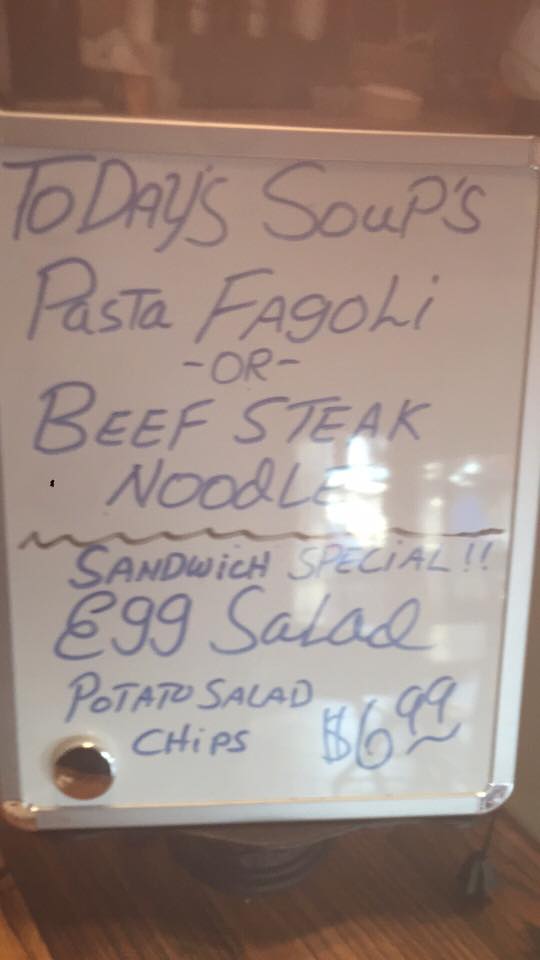 TODAY'S SOUP'S
PASTA FAGOLI
-OR-
BEEF STEAK
NOODLE
SANDWICH SPECIAL!!
Egg Salad
POTATO SALAD
CHIPS $6.99